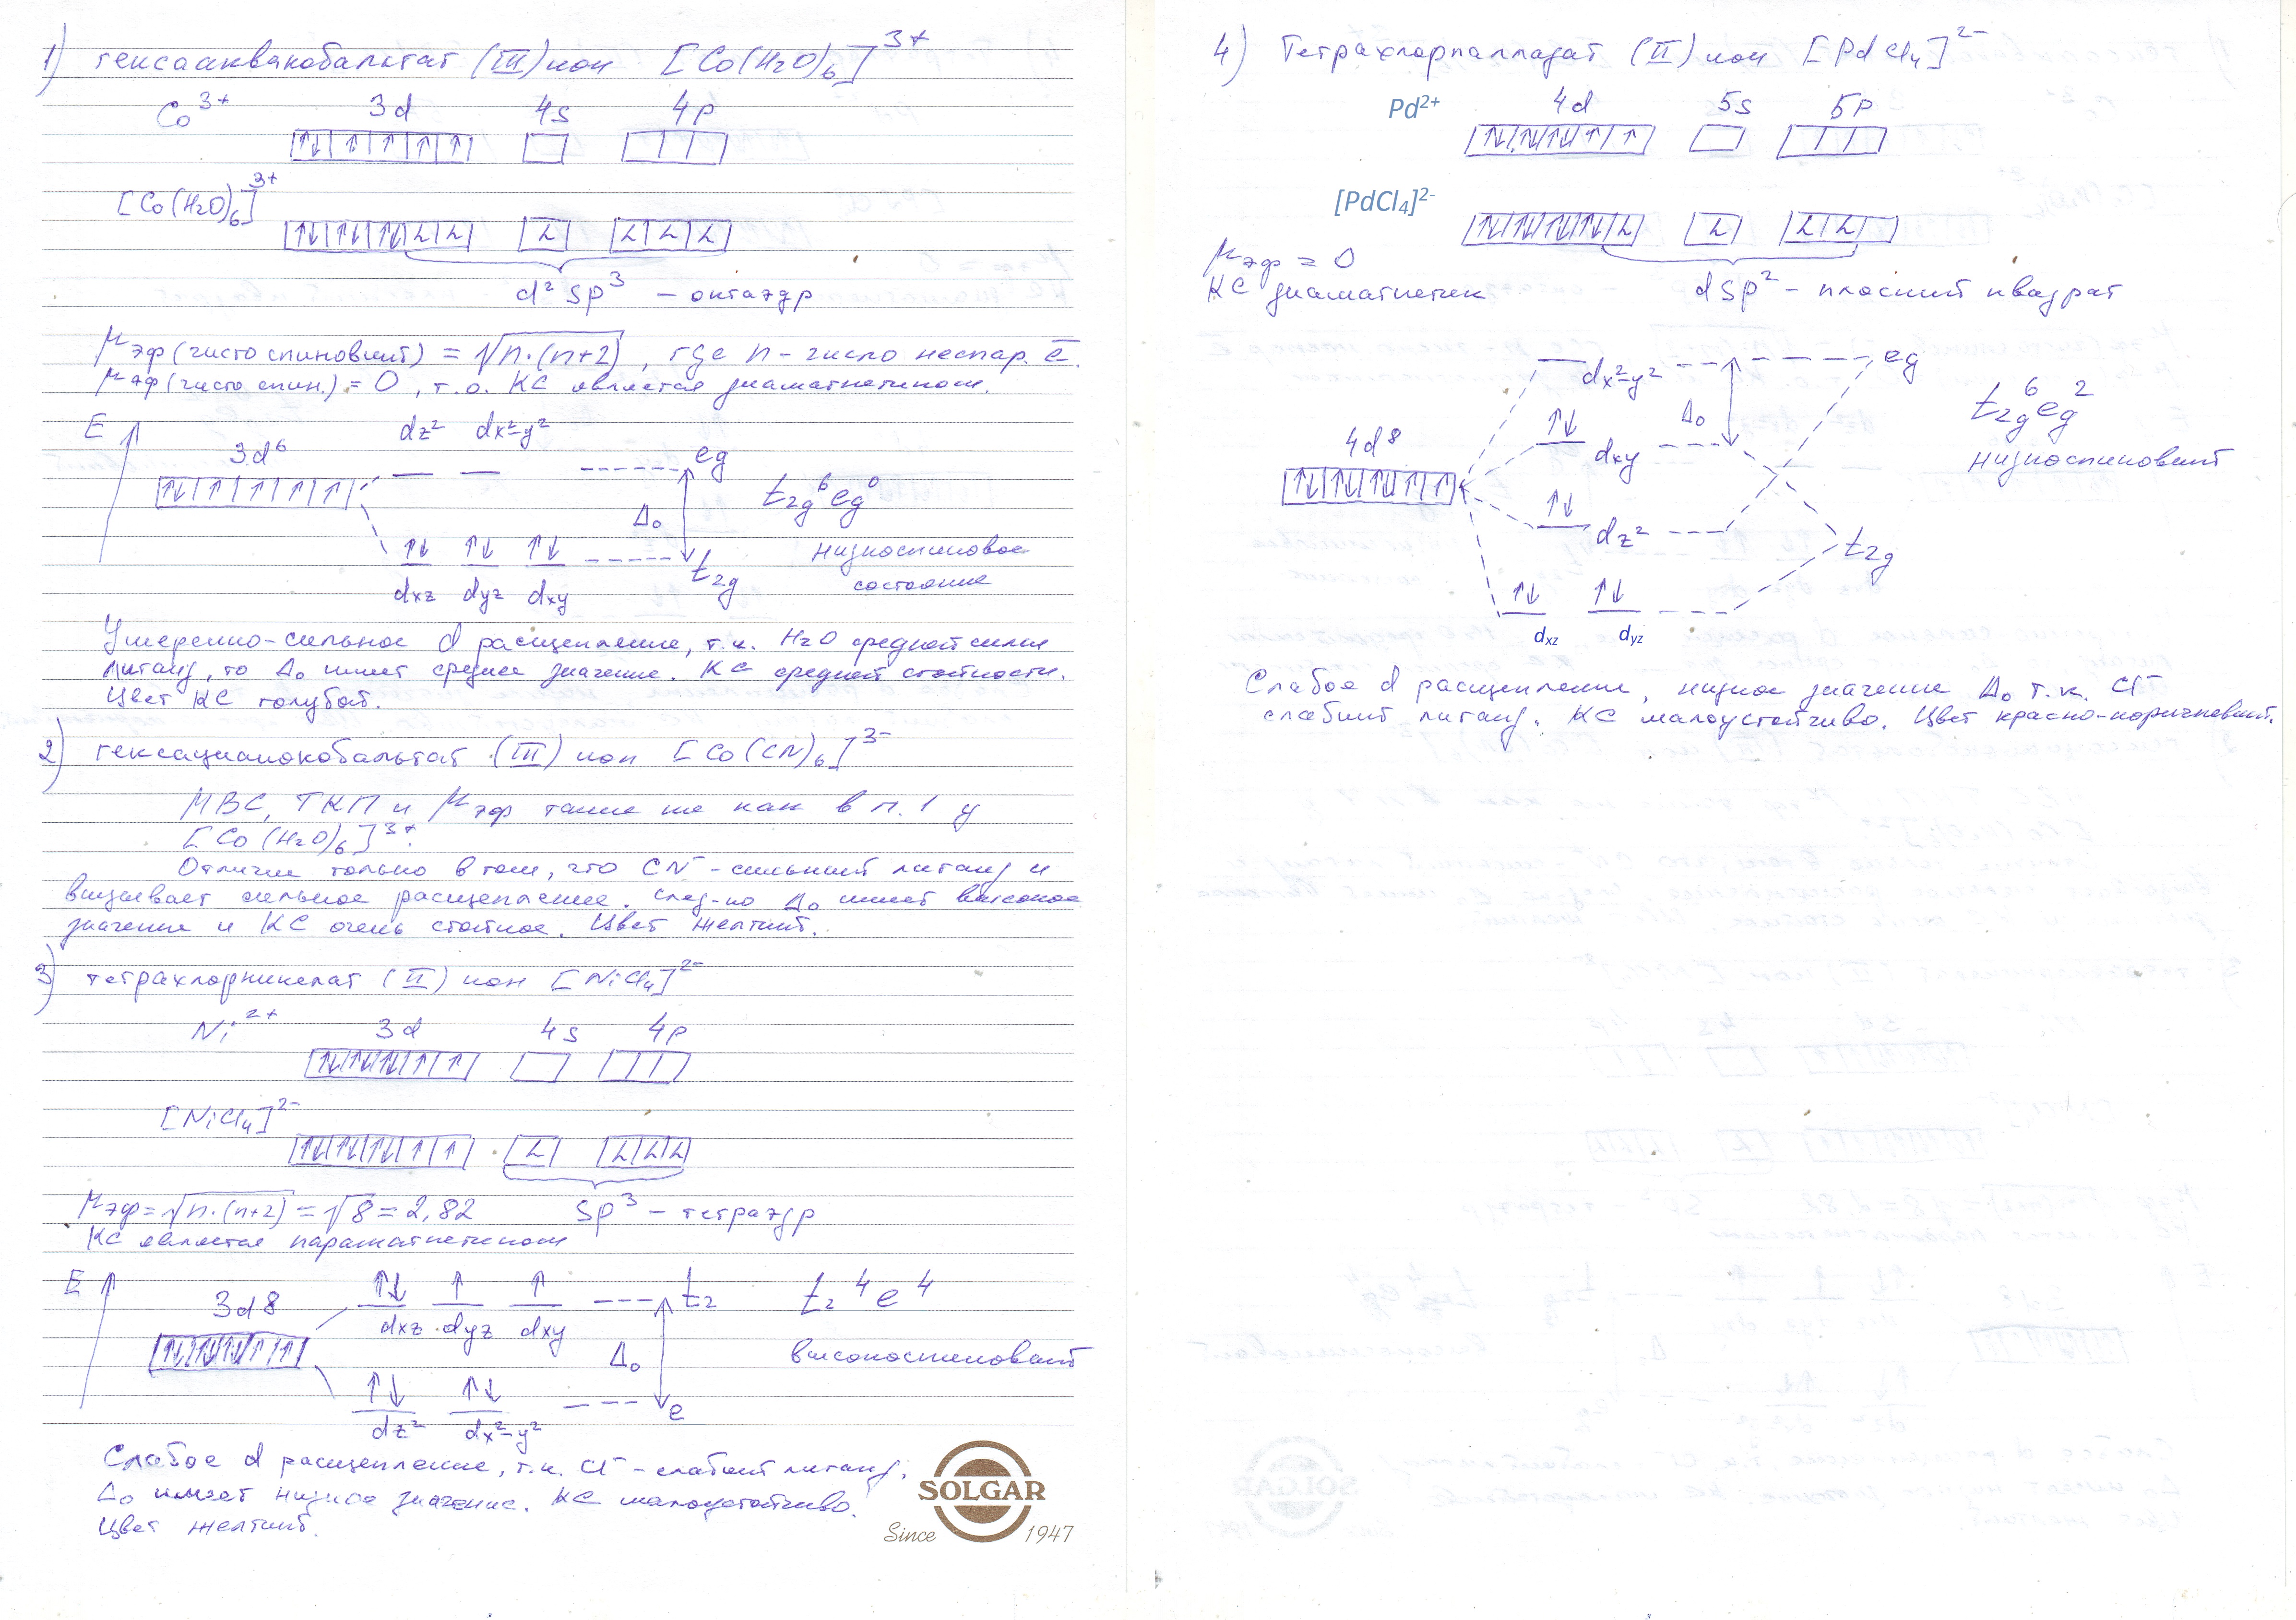 1) гексааквакобальтат (III) ион [Co(H₂O)₆]³⁺
Co³⁺ 3d 4s 4p
↑↓ ↑ ↑ ↑ ↑
[Co(H₂O)₆]³⁺
↑↓ ↑↓ ↑↓
d²sp³ – октаэдр
μэф (чисто спиновый) = √n·(n+2), где n – число неспар. ē.
μэф (чисто спин.) = 0, т.о. КС является диамагнетиком.
E dz² dx²-y²
3d⁶ eg
↑↓ ↑ ↑ ↑ ↑
Δ₀ t₂g⁶eg⁰
↑↓ ↑↓ ↑↓ t₂g низкоспиновое
dxz dyz dxy состояние
Умеренно-сильное d расщепление, т.к. H₂O средней силы
лиганд, то Δ₀ имеет среднее значение. КС средней стойкости.
Цвет КС голубой.
2) гексацианокобальтат (III) ион [Co(CN)₆]³⁻
МВС, ТКП и μэф такие же как в п.1 у
[Co(H₂O)₆]³⁺.
Отличие только в том, что CN⁻ – сильный лиганд и
вызывает сильное расщепление. След-но Δ₀ имеет высокое
значение и КС очень стойкое. Цвет желтый.
3) тетрахлорникелат (II) ион [NiCl₄]²⁻
Ni²⁺ 3d 4s 4p
↑↓ ↑↓ ↑↓ ↑ ↑
[NiCl₄]²⁻
↑↓ ↑↓ ↑↓ ↑ ↑
μэф = √n·(n+2) = √8 = 2,82 sp³ – тетраэдр
КС является парамагнетиком
E ↑↓ ↑ ↑ t₂ t₂⁴e⁴
3d8 dxz dyz dxy
↑↓ ↑↓ ↑↓ ↑ ↑ Δ₀ высокоспиновый
↑↓ ↑↓ e
dz² dx²-y²
Слабое d расщепление, т.к. Cl⁻ – слабый лиганд.
Δ₀ имеет низкое значение. КС малоустойчиво.
Цвет желтый.
SOLGAR
Since 1947
4) Тетрахлорпалладат (II) ион [PdCl₄]²⁻
Pd²⁺ 4d 5s 5p
↑↓ ↑↓ ↑↓ ↑ ↑
[PdCl₄]²⁻
↑↓ ↑↓ ↑↓ ↑↓
μэф = 0
КС диамагнетик dsp² – плоский квадрат
dx²-y² eg
↑↓ dxy Δ₀ t₂g⁶eg²
4d⁸ низкоспиновый
↑↓ ↑↓ ↑↓ ↑ ↑
↑↓ dz² t₂g
↑↓ ↑↓
dxz dyz
Слабое d расщепление, низкое значение Δ₀ т.к. Cl⁻
слабый лиганд. КС малоустойчиво. Цвет красно-коричневый.